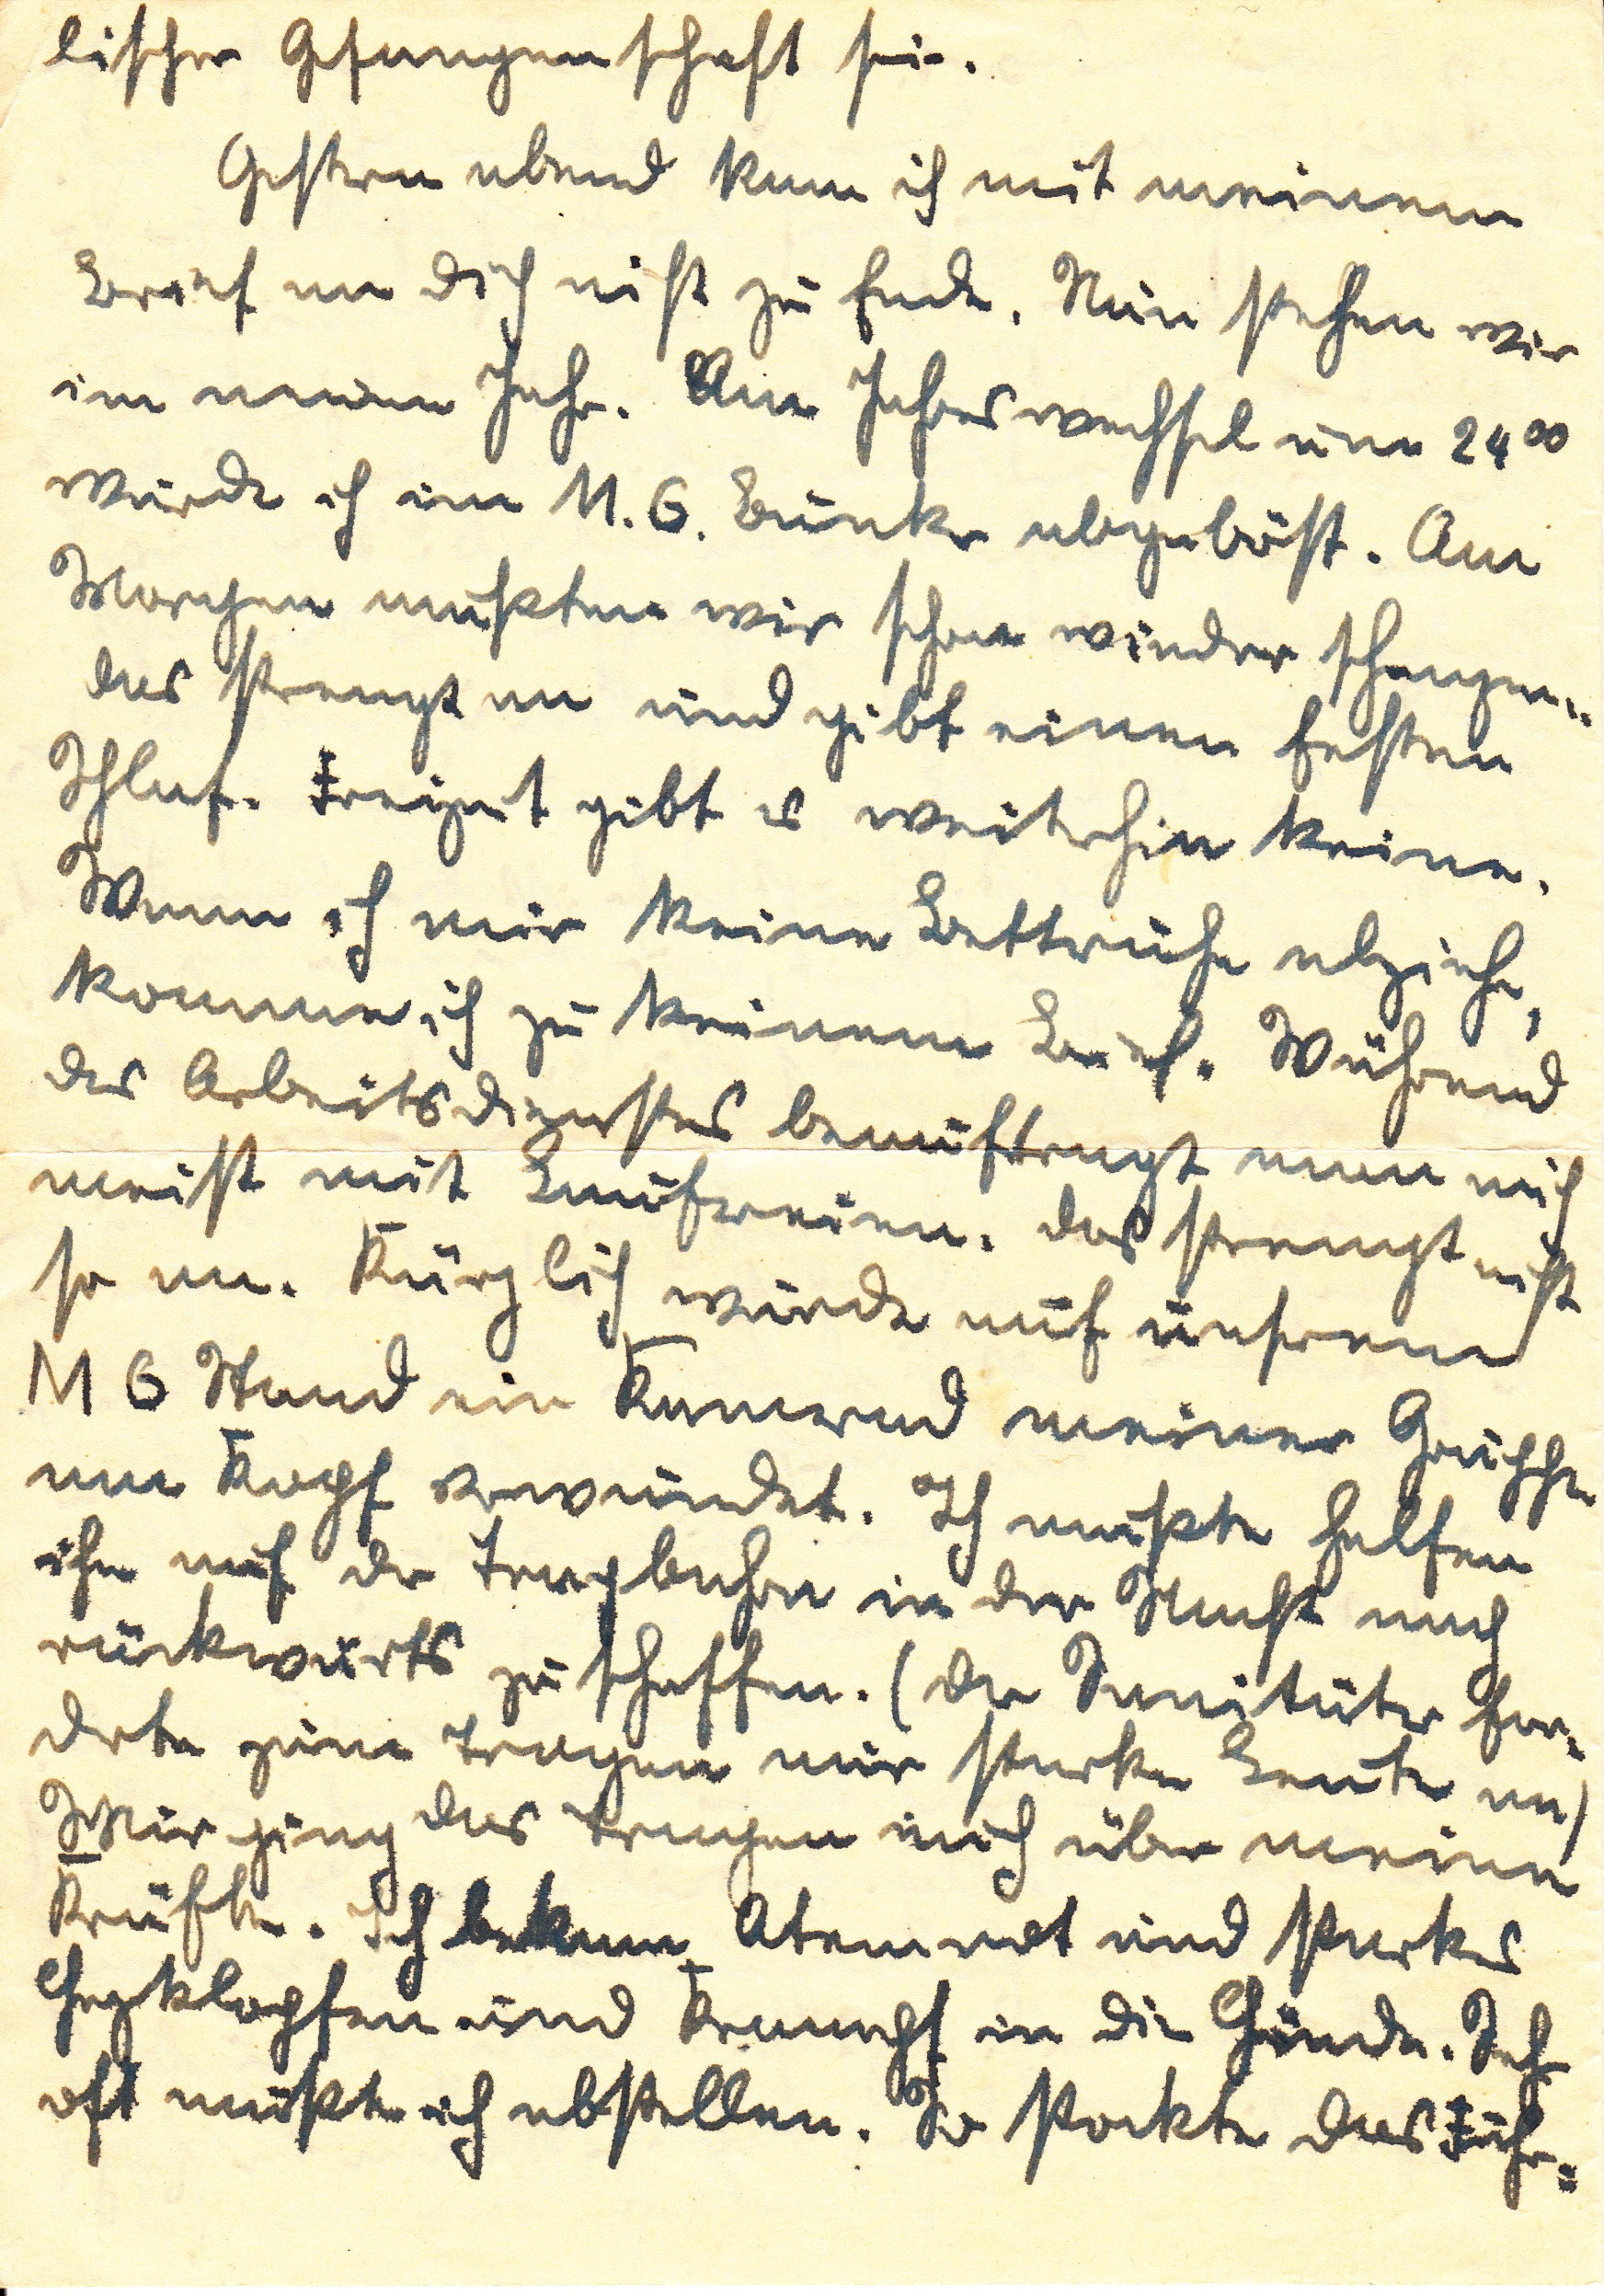 lischer Gefangenschaft sei.
Gestern abend kam ich mit meinem
Brief an Dich nicht zu Ende. Nun stehen wir
im neuen Jahr. Am Jahreswechsel um 24⁰⁰
wurde ich im M.G. Bunker abgelöst. Am
Morgen mußten wir schon wieder schanzen..
das strengt an und gibt einen festen
Schlaf. Freizeit gibt es weiterhin keine.
Wenn ich mir keine Bettruhe abziehe,
komme ich zu keinem Brief. Während
des Arbeitsdienstes beauftragt man mich
meist mit Laufereien. das strengt nicht
so an. Kürzlich wurde auf unserem
M G Stand ein Kamerad meiner Gruppe
am Kopf verwundet. Ich mußte helfen
ihn auf der Tragbahre in der Nacht nach
rückwärts zu schaffen. (der Sanitäter for=
derte zum Tragen nur starke Leute an)
Mir ging das Tragen auch über meine
Kräfte. Ich bekam Atemnot und starkes
Herzklopfen und Krampf in die Hände. Sehr
oft mußte ich abstellen. So stockte das Fuhr=